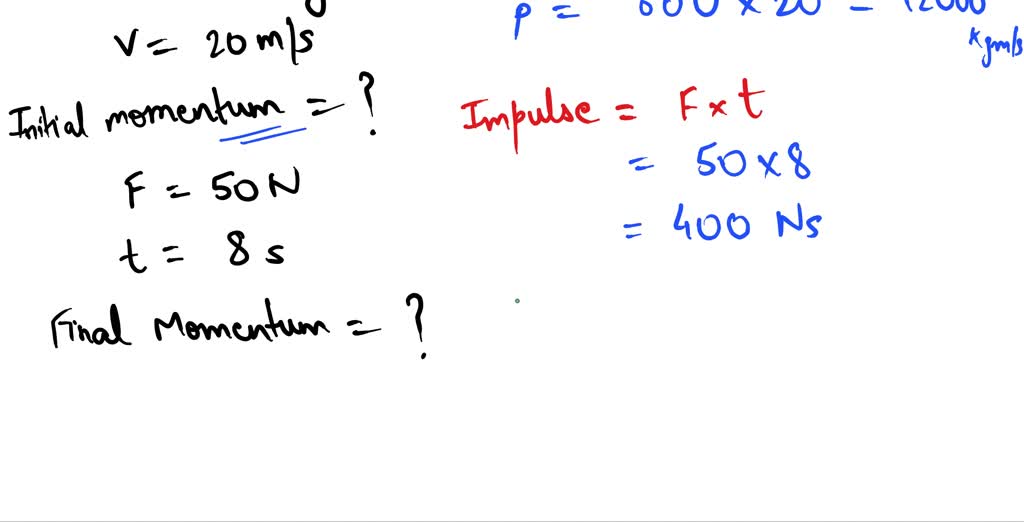 V = 20 m/s
Initial momentum = ?
F = 50 N
t = 8 s
Final Momentum = ?
p = 600 × 20 = 12000
kgm/s
Impulse = F × t
= 50 × 8
= 400 Ns